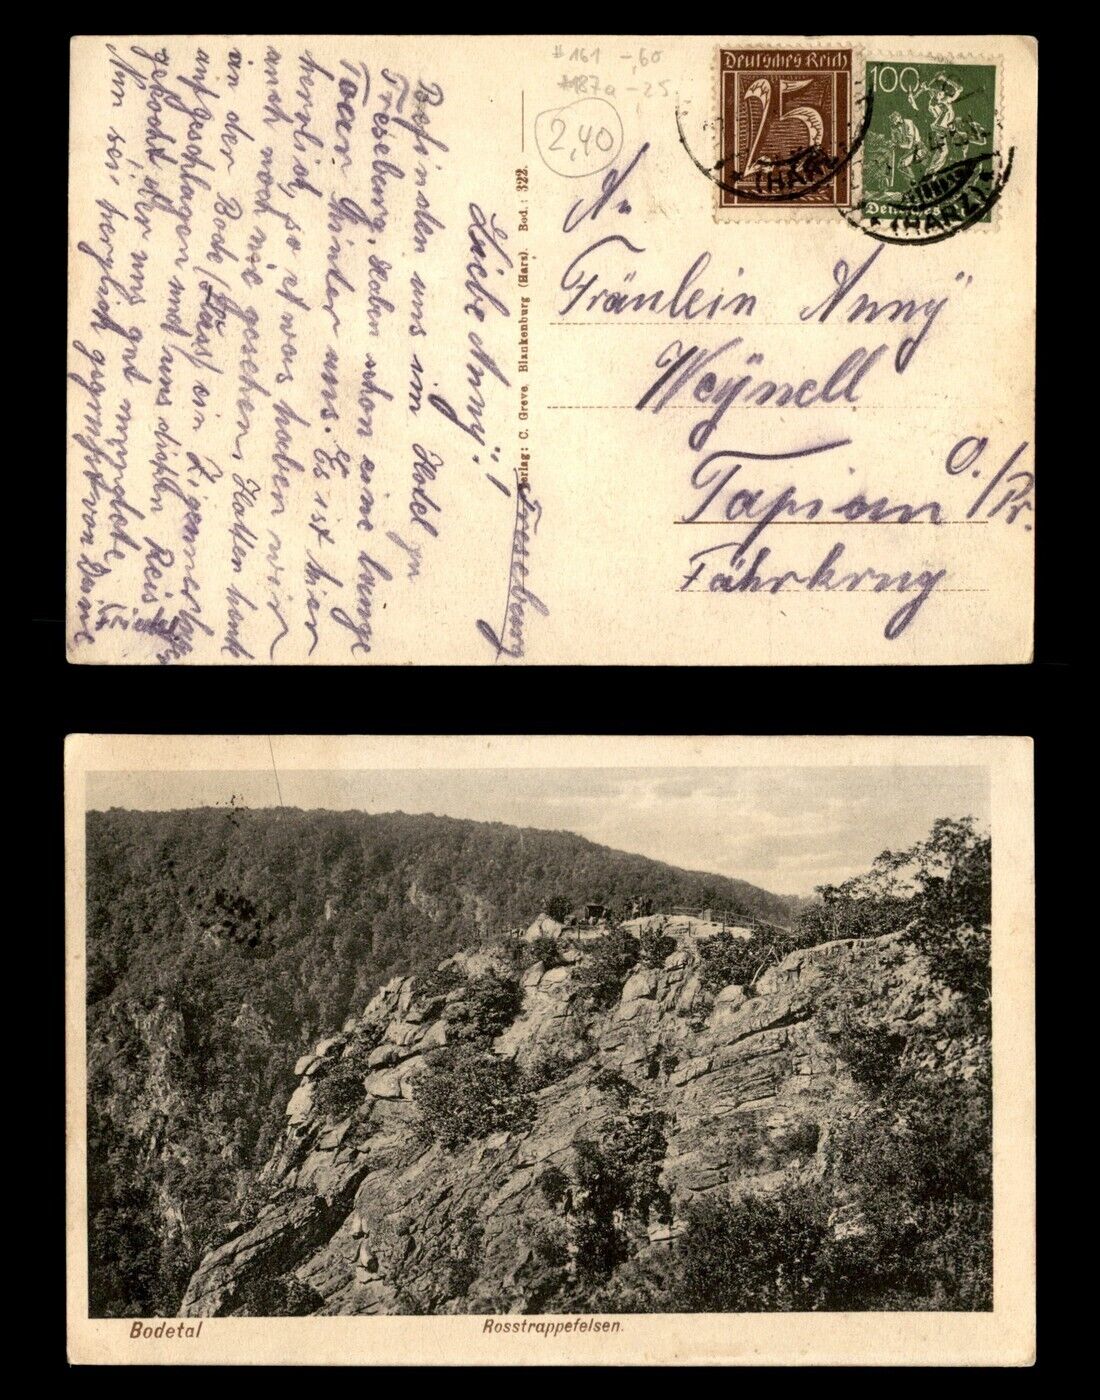 #161 -,60
#187a -25
2,40
Deutsches Reich
25
100
(HARZ)
(HARZ)
An
Fräulein Anny
Weynell
Tapiau O./Pr.
Fährkrug
Verlag: C. Greve, Blankenburg (Harz). Best.: 322.
Treseburg
Liebe Anny!
Befinden uns im Hotel zu
Treseburg. Haben schon eine lange
Tour hinter uns. Es ist hier
herrlich, so etwas haben wir
auch noch nie gesehen. Hatten heute
an der Bode (Fluss) ein Zigeunerlager
aufgeschlagen und uns dicken Reis
gekocht der uns gut mundete
Nun sei herzlich gegrüßt von Deiner
Bodetal
Rosstrappefelsen.